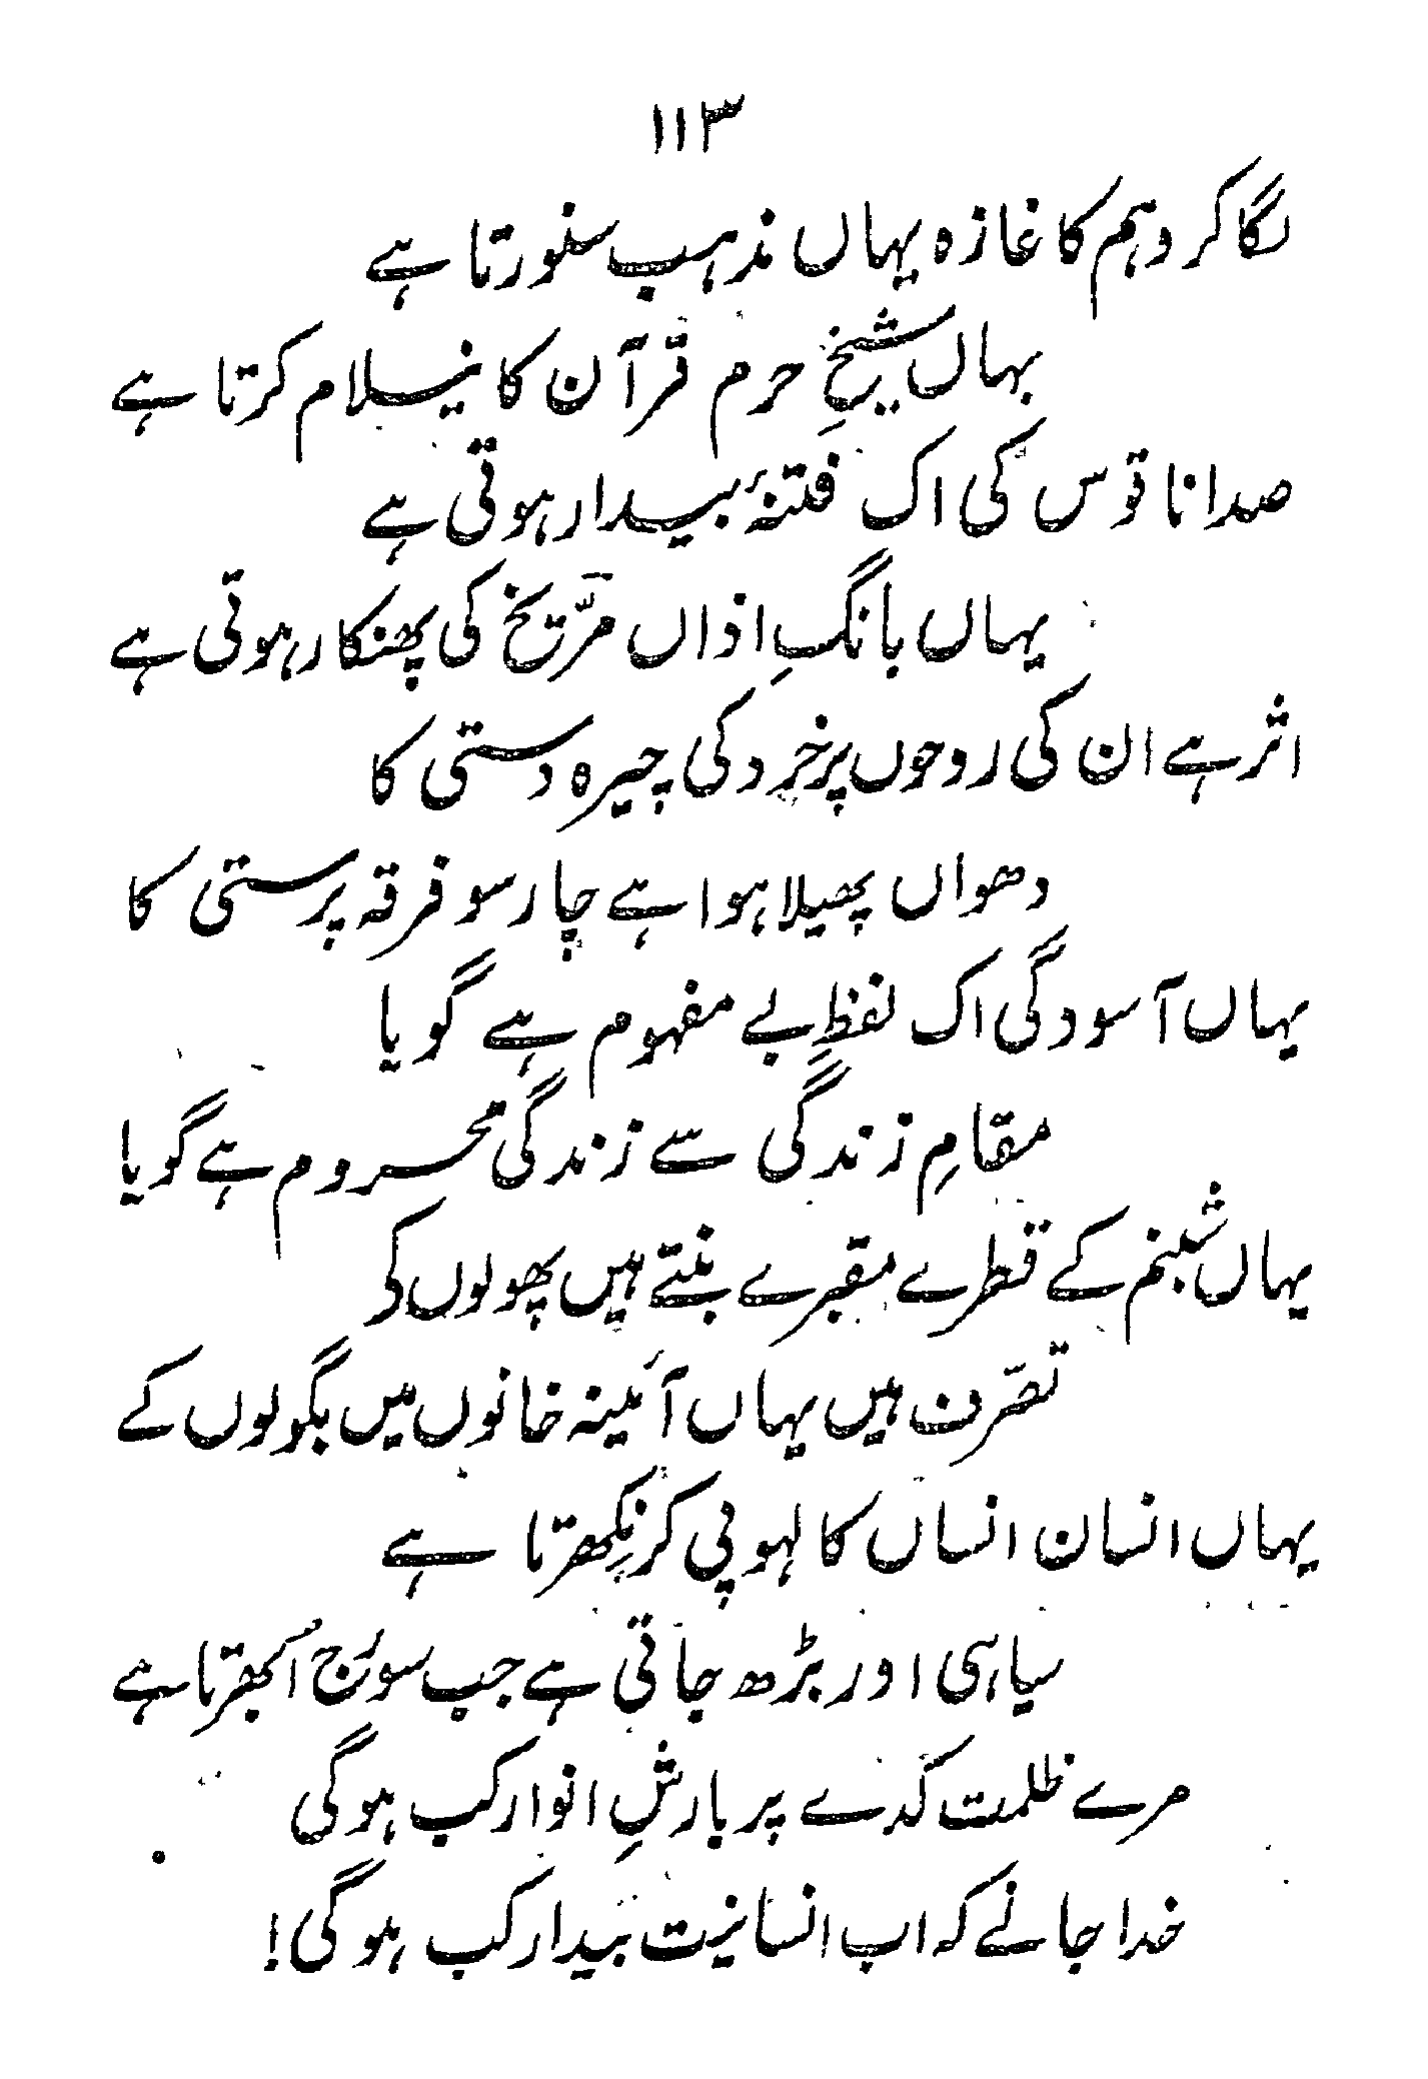 ۱۱۳
لگا کر وہم کا غازہ یہاں مذہب سنورتا ہے
یہاں شیخِ حرم قرآن کا نیلام کرتا ہے
صدا ناقوس کی اک فتنۂ بیدار ہوتی ہے
یہاں بانگِ اذاں مرّیخ کی پھنکار ہوتی ہے
اثر ہے ان کی روحوں پر خرد کی چیرہ دستی کا
دھواں پھیلا ہوا ہے چار سو فرقہ پرستی کا
یہاں آسودگی اک لفظِ بے مفہوم ہے گویا
مقامِ زندگی سے زندگی محروم ہے گویا
یہاں شبنم کے قطرے مقبرے بنتے ہیں پھولوں کے
تصرّف ہیں یہاں آئینہ خانوں میں بگولوں کے
یہاں انسان انساں کا لہو پی کر نِکھرتا ہے
سیاہی اور بڑھ جاتی ہے جب سورج اُبھرتا ہے
مرے ظلمت کدے پر بارشِ انوار کب ہوگی
خدا جانے کہ اب انسانیت بیدار کب ہوگی!